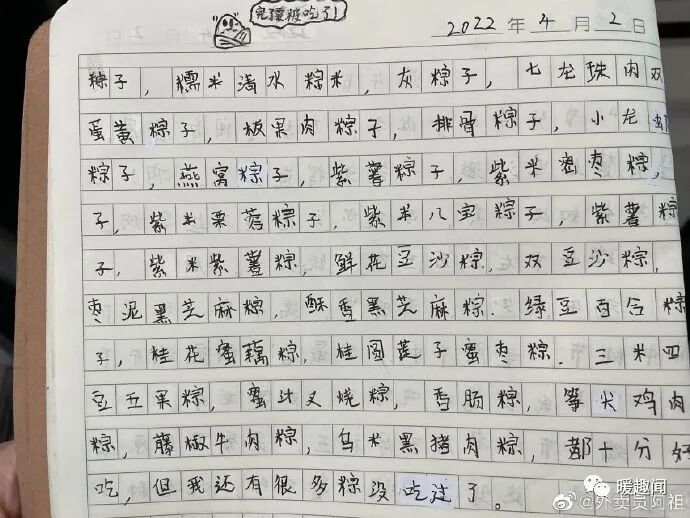 完了要被吃了!
2022年4月2日
粽子，糯米清水粽米，灰粽子，七龙珠肉双
蛋黄粽子，板栗肉粽子，排骨粽子，小龙虾
粽子，燕窝粽子，紫薯粽子，紫米蜜枣粽，
子，紫米栗蓉粽子，紫米八宝粽子，紫薯粽
子，紫米紫薯粽，鲜花豆沙粽，双豆沙粽，
枣泥黑芝麻粽，酥香黑芝麻粽．绿豆百合粽
子，桂花蜜藕粽，桂圆莲子蜜枣粽．三米四
豆五果粽，蜜汁叉烧粽，香肠粽，笋尖鸡肉
粽，藤椒牛肉粽，乌米黑猪肉粽，都十分好
吃，但我还有很多粽没吃过了。
暖趣闻
@外卖员阿祖